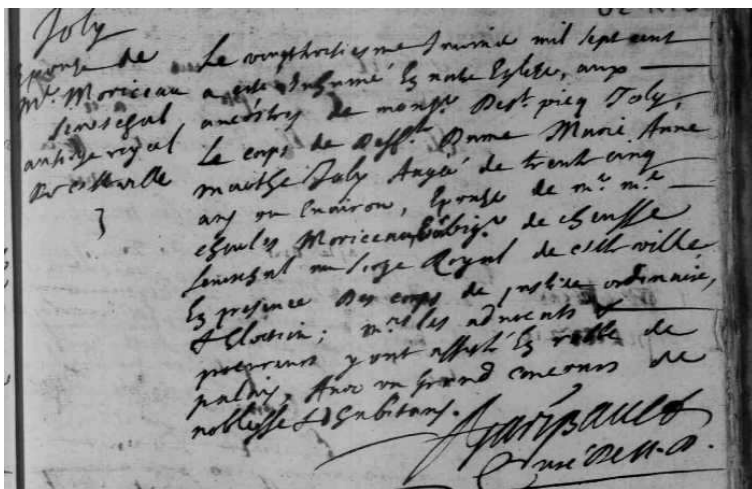 Joly
Epouse de
Mr. Moriceau
seneschal
au siege royal
de cette ville
Le vingthuitiesme Juin mil sept cent
a esté Inhumé En notre Eglise, aux
ancêstres de monsr. Joly,
Le corps de deffte. Dame Marie Anne
Joly Aagée de trente cinq
ans ou Environ, Epouse de mr. me.
charles Moriceau, de cheusse
senechal au siege Royal de cette ville
En presence des corps de justice ordinaire,
& Election; mrs. les advocats &
procureurs y ont assisté En robbe de
palais, Avec un Grand concours de
noblesse & d'habitans.
Garipault
Curé de